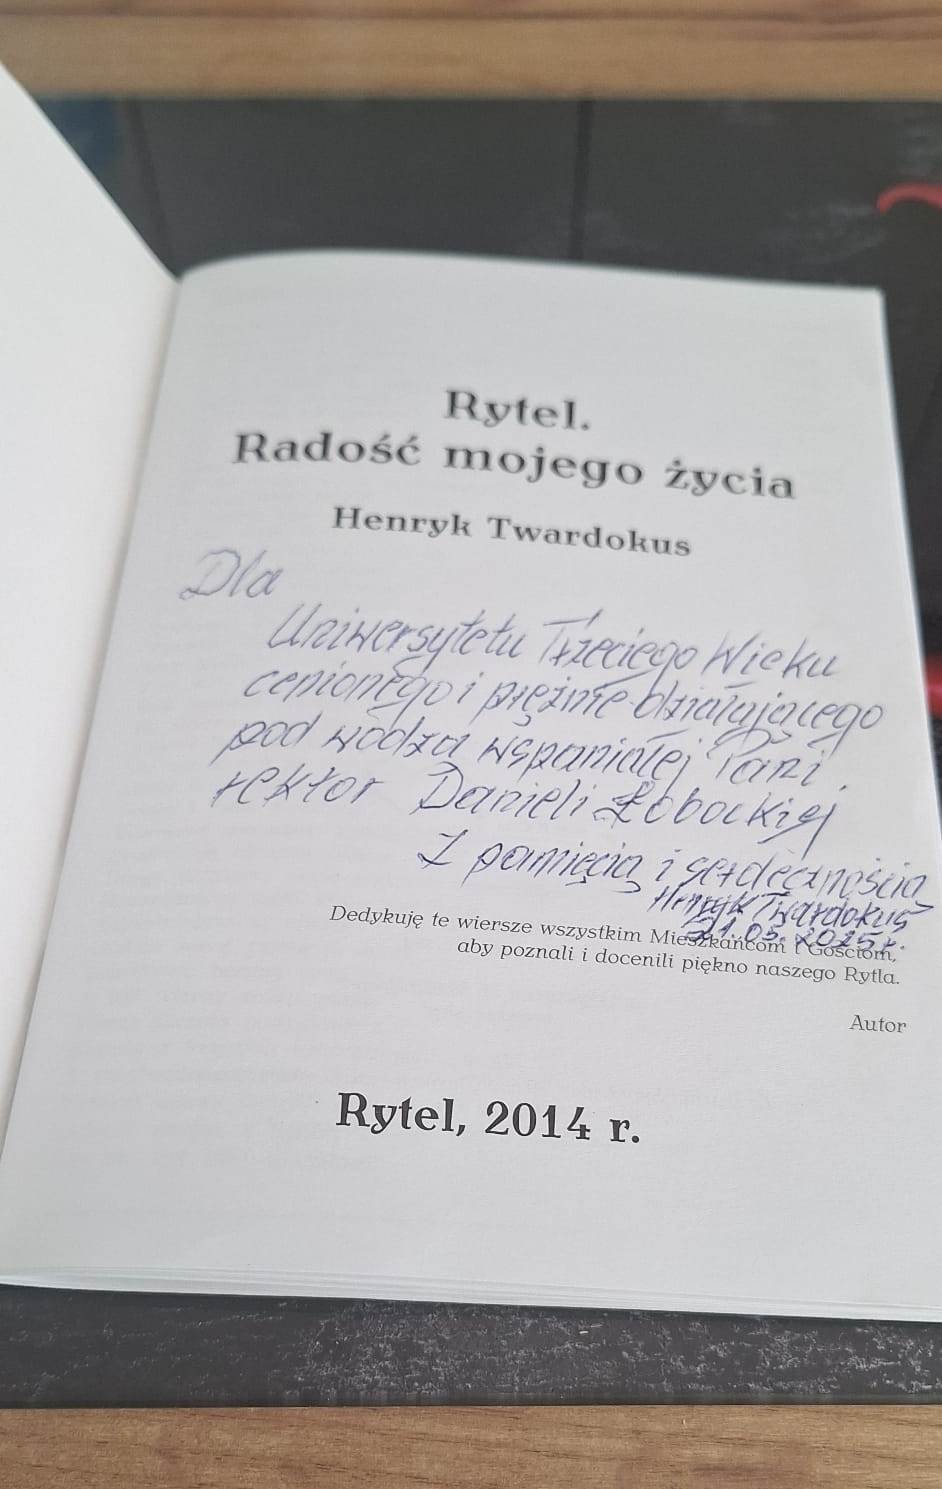 Rytel.
Radość mojego życia
Henryk Twardokus
Dla
Uniwersytetu Trzeciego Wieku
cenionego i prężnie działającego
pod wodzą wspaniałej Pani
rektor Danieli Łobockiej
Z pamięcią i serdecznością
Henryk Twardokus
21.05.2025r.
Dedykuję te wiersze wszystkim Mieszkańcom i Gościom,
aby poznali i docenili piękno naszego Rytla.
Autor
Rytel, 2014 r.